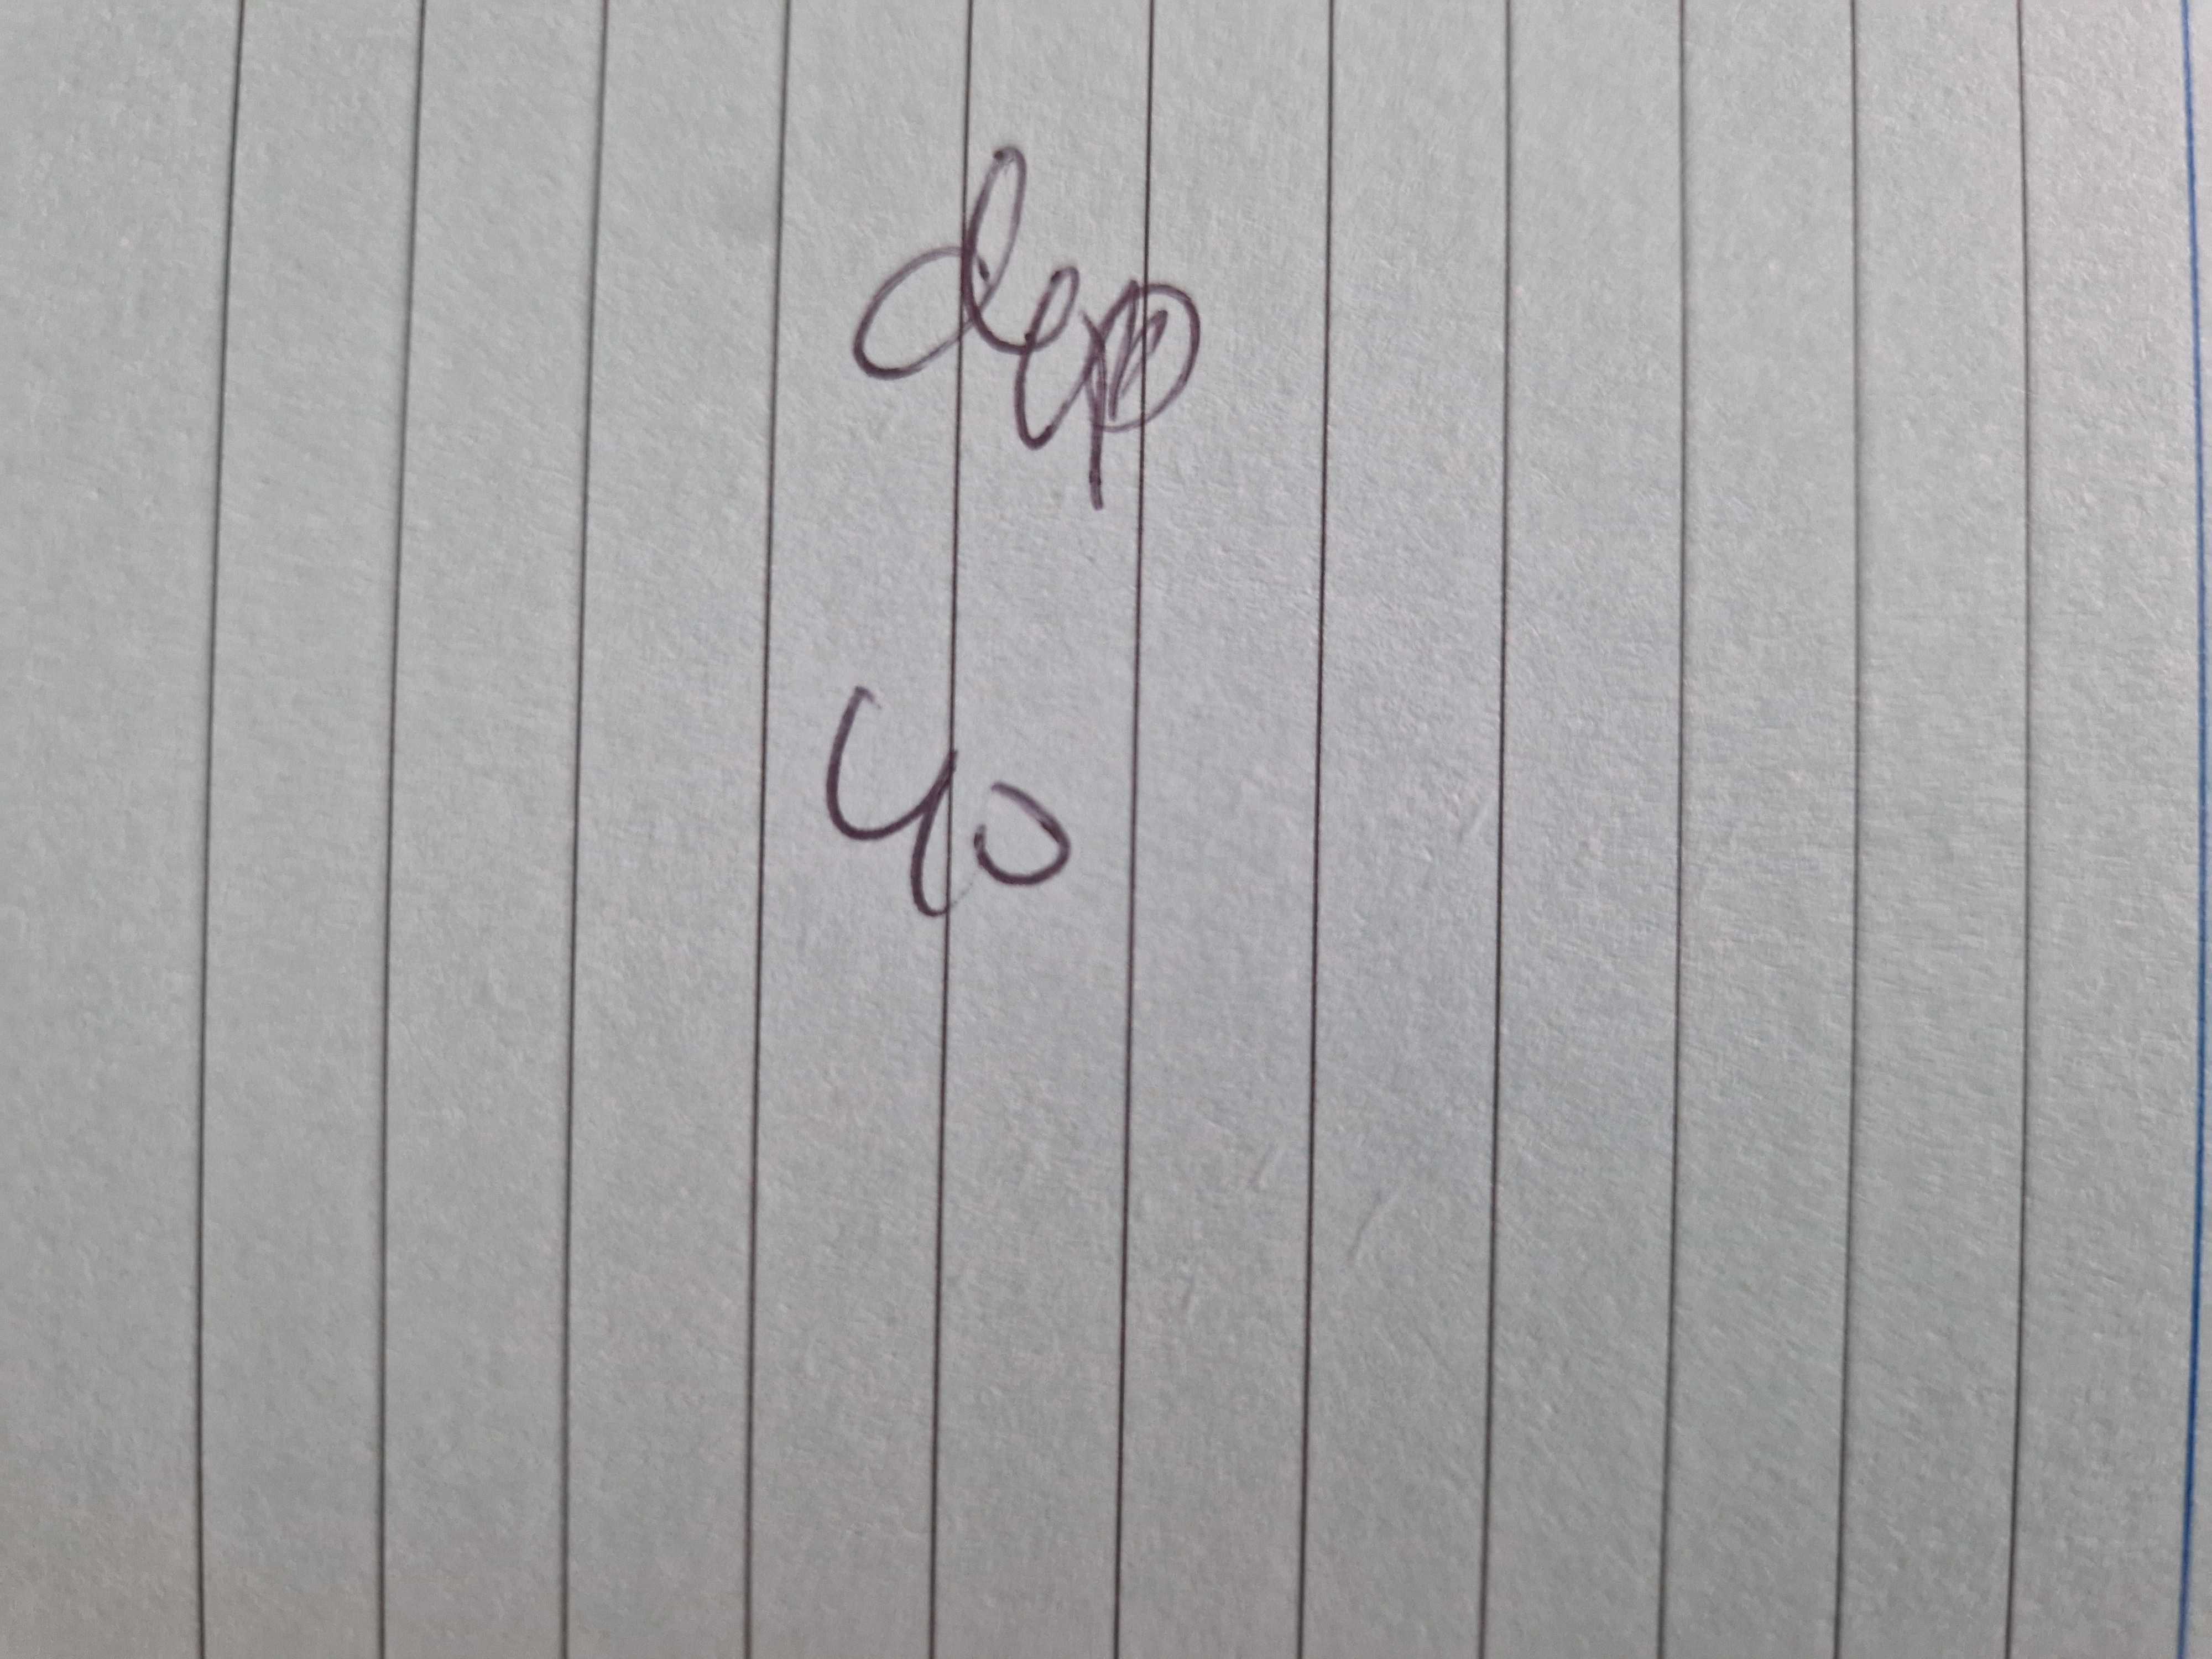 dep
40